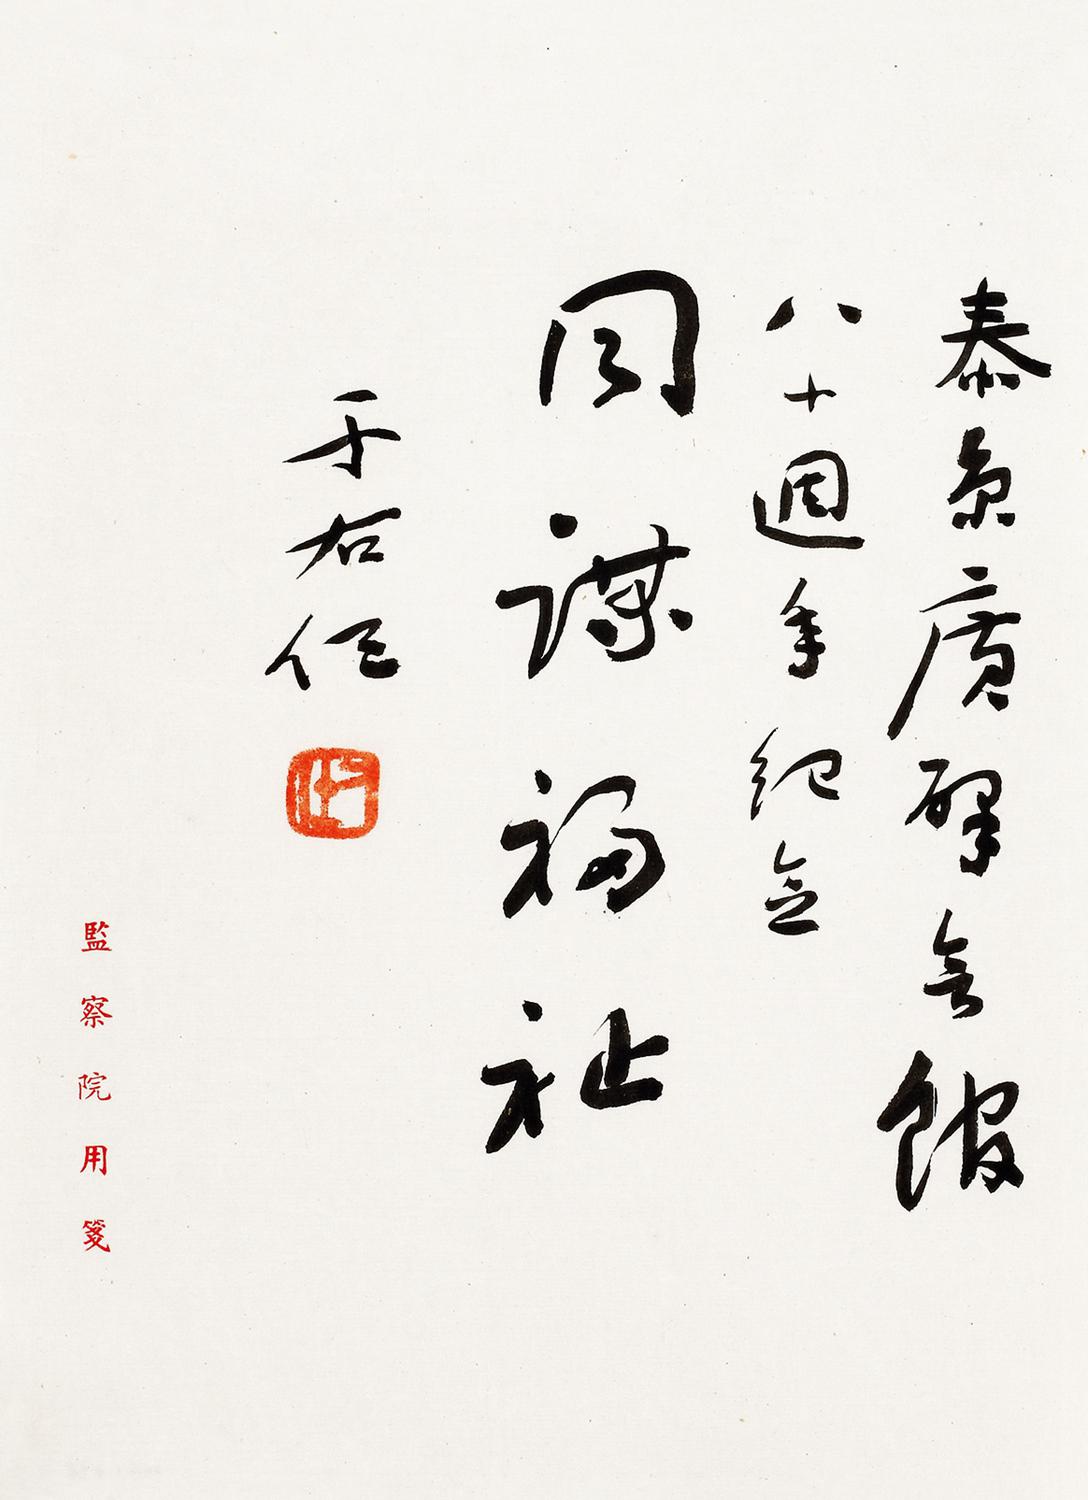 泰京廣肇會館
八十週年紀念
同謀福祉
于右任
右任
監察院用箋